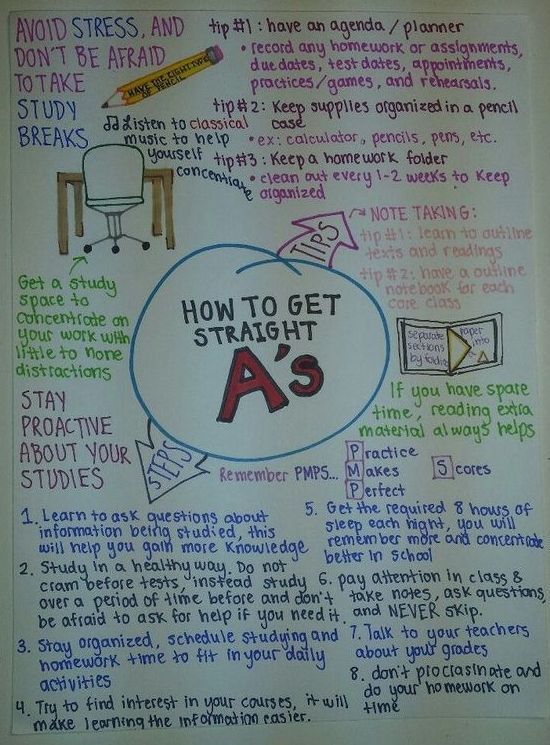 AVOID STRESS, AND
DON'T BE AFRAID
TO TAKE
STUDY
BREAKS
HAVE THE RIGHT TYPE
OF PENCIL
♫ Listen to classical
music to help
yourself
concentrate
tip #1: have an agenda/planner
• record any homework or assignments,
due dates, test dates, appointments,
practices/games, and rehearsals.
tip #2: Keep supplies organized in a pencil
case
• ex: calculator, pencils, pens, etc.
tip #3: Keep a homework folder
• clean out every 1-2 weeks to keep
organized
TIPS
NOTE TAKING:
tip #1: learn to outline
texts and readings
tip #2: have a outline
notebook for each
core class
separate
sections
by folding
paper
into
a
Get a study
space to
concentrate on
your work with
little to none
distractions
HOW TO GET
STRAIGHT
A's
If you have spare
time, reading extra
material always helps
STAY
PROACTIVE
ABOUT YOUR
STUDIES
STEPS
Remember PMPS...
Practice
Makes
Perfect
Scores
1. Learn to ask questions about
information being studied, this
will help you gain more knowledge
2. Study in a healthy way. Do not
cram before tests, instead study
over a period of time before and don't
be afraid to ask for help if you need it.
3. Stay organized, schedule studying and
homework time to fit in your daily
activities
4. Try to find interest in your courses, it will
make learning the information easier.
5. Get the required 8 hours of
sleep each night, you will
remember more and concentrate
better in school
6. pay attention in class &
take notes, ask questions,
and NEVER skip.
7. Talk to your teachers
about your grades
8. don't procrasinate and
do your homework on
time